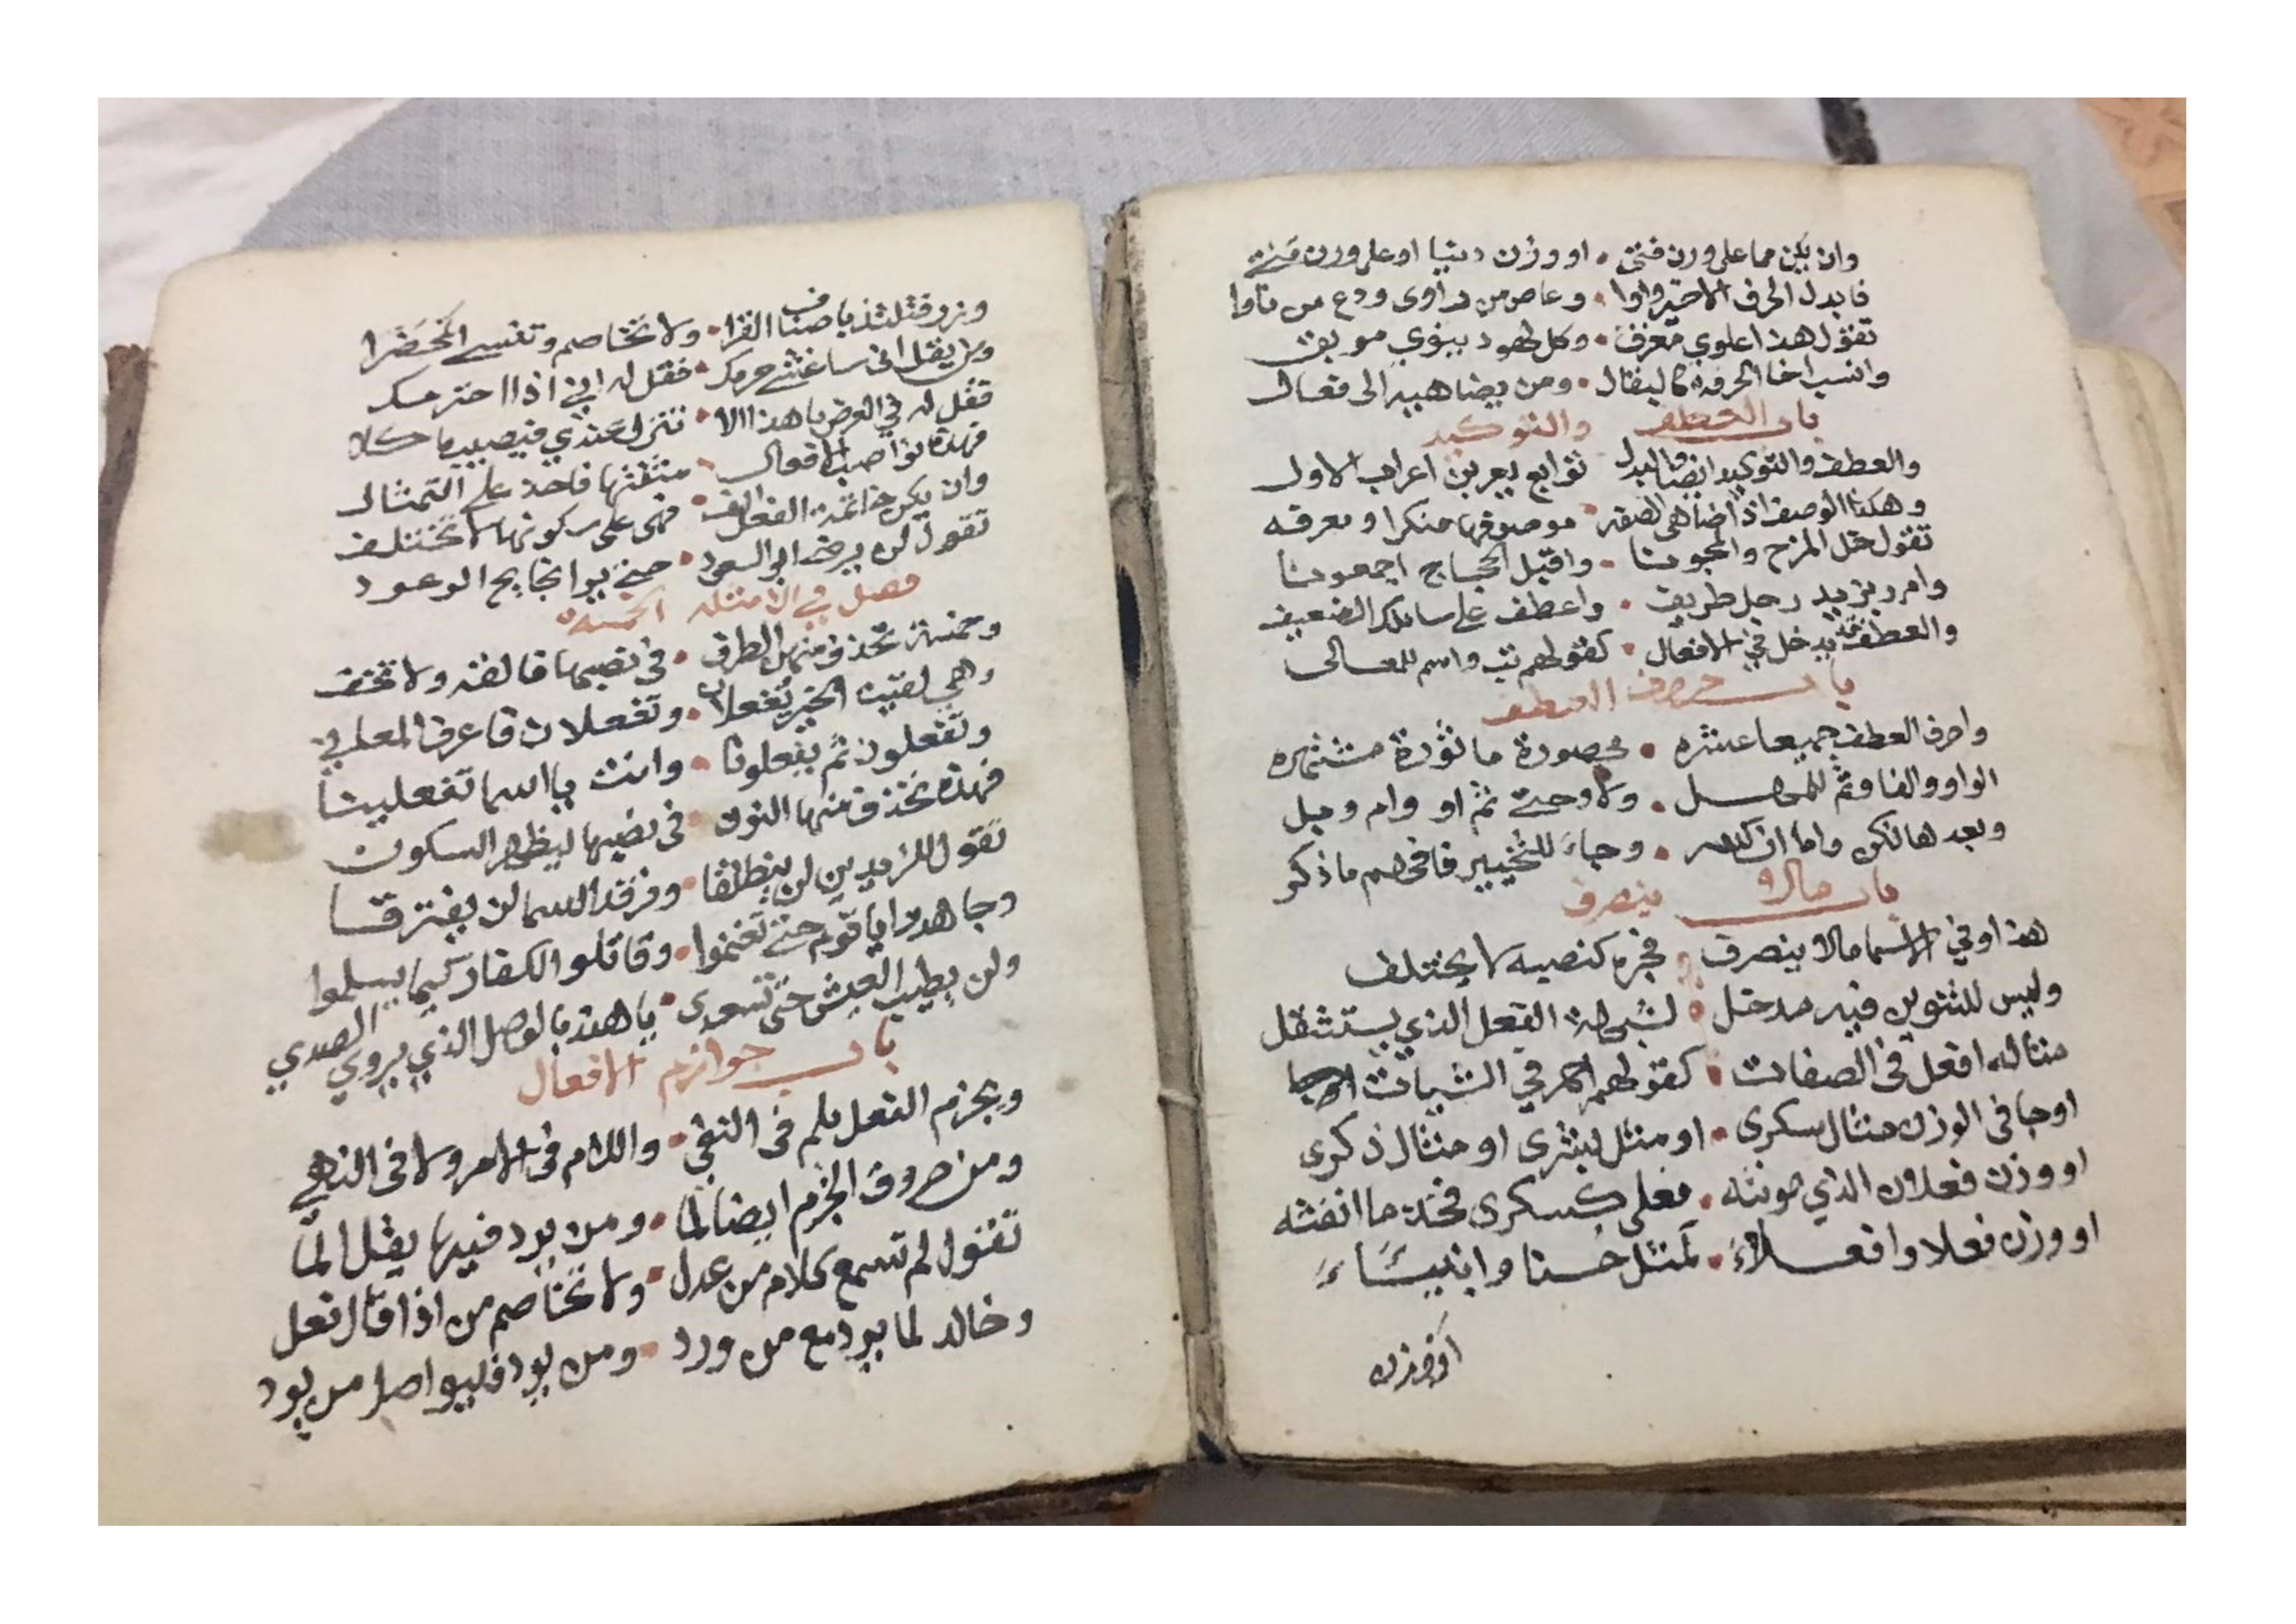 وان يكن مما على ورن فتى • او وزن دنيا او على ورن متى
فابدل الحرف الاخير واوا • وعاص من مارى ودع من ناوا
تقول هذا علوي معرف • وكل لهود بنوي موبق
وانسب اخا الحرفه كالبقال • ومن يضاهيه الى فعال
باب العطف والتوكيد
والعطف والتوكيد ايضا والبدل توابع يعربن اعراب الاول
وهكذا الوصف اذا ضاهى الصفه • موصوفها منكرا او معرفه
تقول خل المزح والمجونا • واقبل الحجاج اجمعونا
وامرر بزيد رجل ظريف • واعطف على سائلك الضعيف
والعطف قد يدخل في الافعال • كقولهم ثب واسم للمعالى
باب حروف العطف
واحرف العطف جميعا عشره • محصورة ماثورة مشتهره
الواو والفا وثم للمهل • ولا وحتى ثم او وام وبل
وبعدها لكن واما ان كسر • وجاء للتخيير فافهم ما ذكر
باب مالا ينصرف
هذا وفي الاسما مالا ينصرف • فجره كنصبه لا يختلف
وليس للتنوين فيه مدخل • لشبهه الفعل الذي يستثقل
مثاله افعل فى الصفات • كقولهم احمر في الشيات
او جا فى الوزن مثال سكرى • او مثل بشرى او مثال ذكرى
او وزن فعلان الذي مونثه • فعلى كسكرى فخذ ما انفثه
او وزن فعلا وافعلاء • كمثل حسنا وانبياء
او وزن
وزر فتلتذ باصناف القرا • ولا تخاصم وتسيء المحضرا
ومن يقل انى ساغشى حرمك • فقل له اني اذا احترمك
وقل له في العرض يا هذا الا • تنزل عندي فتصيب ماكلا
فهذه نواصب الافعال • مثلتها فاحذ على التمثال
وان يكن خاتمة الفعل الف • فهى على سكونها لا تختلف
تقول لن يرضى ابو السعود • حتى يرا نجايح الوعود
فصل في الامثله الخمسه
وخمسة تحذف منهن الطرف • فى نصبها فالقه ولا تخف
وهي لقيت الخير تفعلان • وتفعلان فاعرف المعاني
وتفعلون ثم يفعلونا • وانت يا اسما تفعلينا
فهذه تحذف منها النون • فى نصبها ليظهر السكون
تقول للزيدين لن ينطلقا • وفرقد السما لن يفترقا
وجاهدوا يا قوم حتى تغنموا • وقاتلوا الكفار كيما يسلموا
ولن يطيب العيش حتى تسعدى • يا هند بالوصل الذي يروي الصدي
باب جوازم الافعال
ويجزم الفعل بلم فى النفي • واللام فى الامر ولا فى النهي
ومن حروف الجزم ايضا لما • ومن يزد فيها يقل الما
تقول لم تسمع كلام من عدل • ولا تخاصم من اذا قال فعل
وخالد لما يرد مع من ورد • ومن يود فليواصل من يود